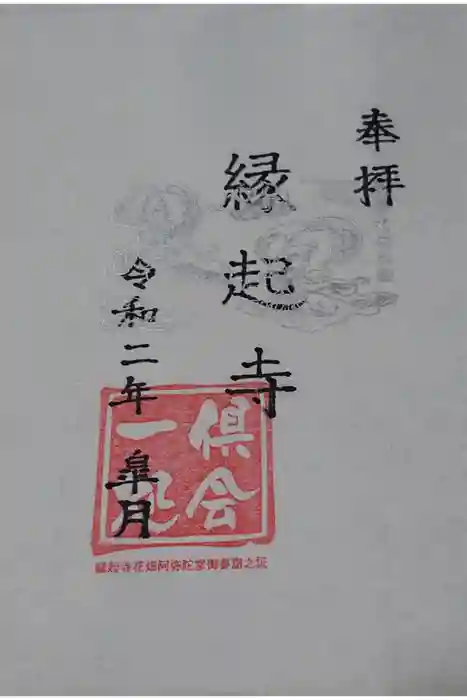 奉拝
縁起寺
令和二年
皐月
倶会
一処
縁起寺花畑阿弥陀堂御参詣之証